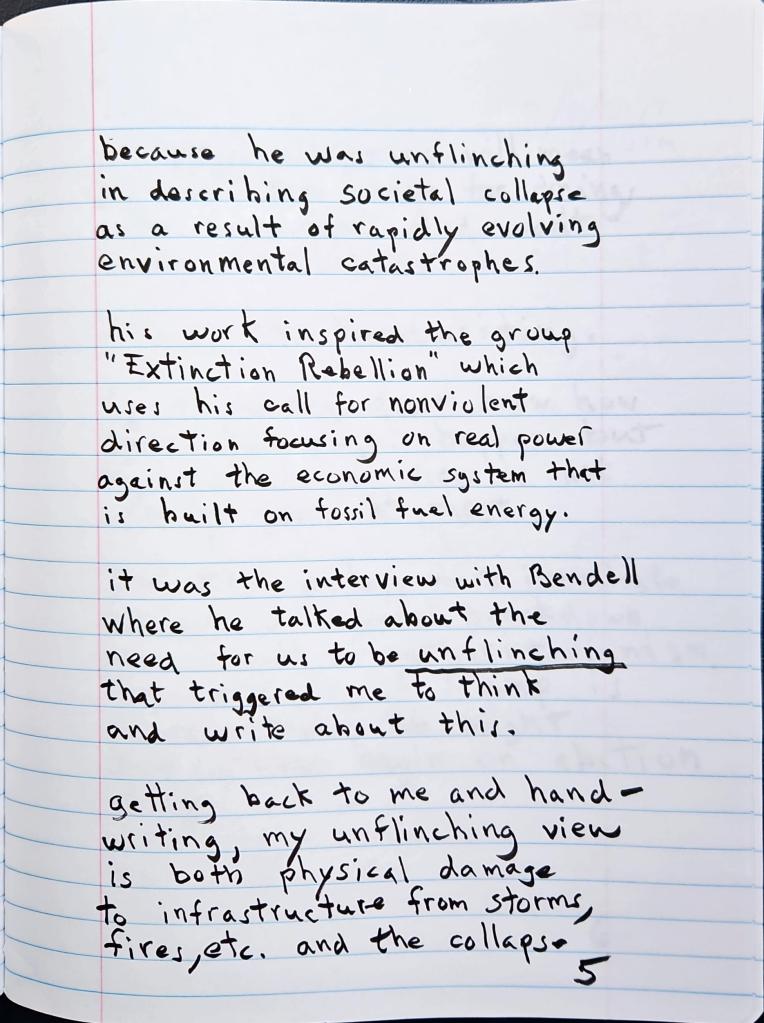 because he was unflinching
in describing societal collapse
as a result of rapidly evolving
environmental catastrophes.
his work inspired the group
"Extinction Rebellion" which
uses his call for nonviolent
direction focusing on real power
against the economic system that
is built on fossil fuel energy.
it was the interview with Bendell
where he talked about the
need for us to be unflinching
that triggered me to think
and write about this.
getting back to me and hand-
writing, my unflinching view
is both physical damage
to infrastructure from storms,
fires, etc. and the collapse
5